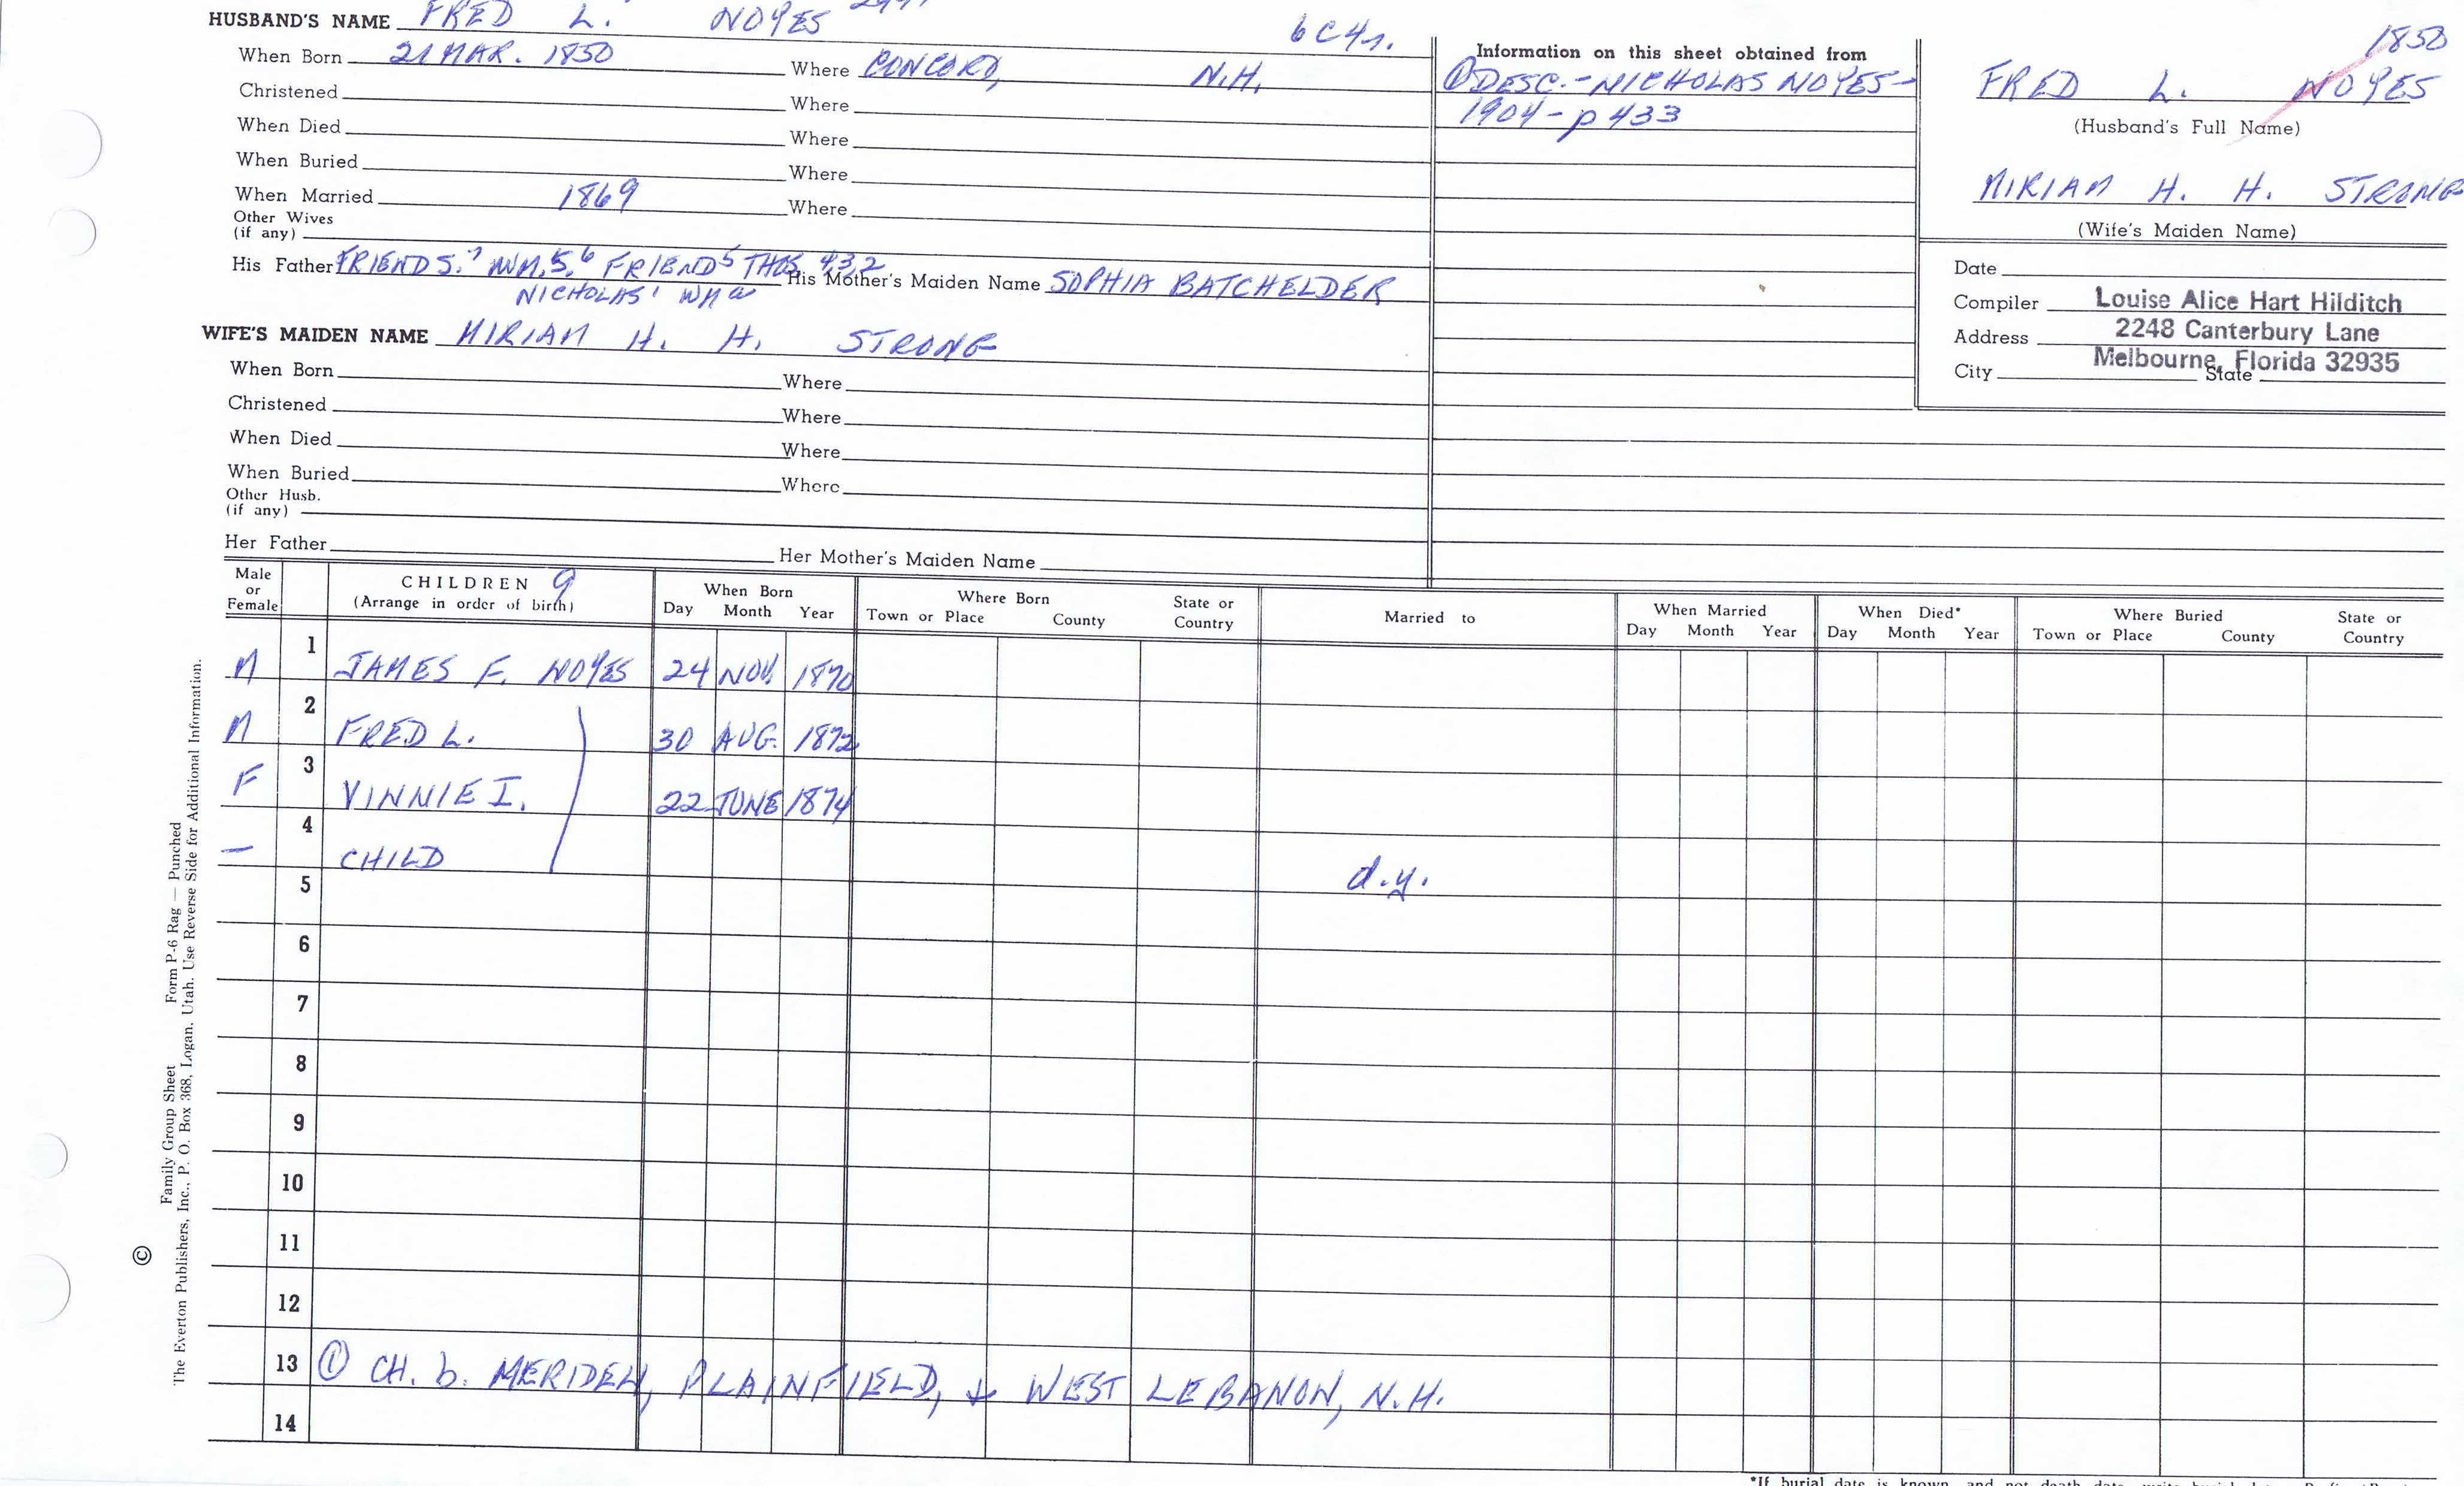 HUSBAND'S NAME FRED L. NOYES
6C4r.
When Born 21 MAR. 1850 Where CONCORD, N.H.
Christened Where
When Died Where
When Buried Where
When Married 1869 Where
Other Wives
(if any)
His Father FRIEND S.7 WM. S.6 FRIEND5 THOS 4,3,2 His Mother's Maiden Name SOPHIA BATCHELDER
NICHOLAS1 WM a
WIFE'S MAIDEN NAME MIRIAM H. H. STRONG
When Born Where
Christened Where
When Died Where
When Buried Where
Other Husb.
(if any)
Her Father Her Mother's Maiden Name
Information on this sheet obtained from
① DESC.-NICHOLAS NOYES-
1904-p 433
1850
FRED L. NOYES
(Husband's Full Name)
MIRIAM H. H. STRONG
(Wife's Maiden Name)
Date
Compiler Louise Alice Hart Hilditch
Address 2248 Canterbury Lane
Melbourne, Florida 32935
City State
Male or Female CHILDREN 9 (Arrange in order of birth) When Born Day Month Year Where Born Town or Place County State or Country Married to When Married Day Month Year When Died* Day Month Year Where Buried Town or Place County State or Country
M 1 JAMES F. NOYES 24 NOV. 1870
M 2 FRED L. 30 AUG. 1872
F 3 VINNIE I. 22 JUNE 1874
— 4 CHILD d.y.
5
6
7
8
9
10
11
12
13 ① CH. b. MERIDEN, PLAINFIELD, & WEST LEBANON, N.H.
14
© Family Group Sheet Form P-6 Rag — Punched
The Everton Publishers, Inc., P. O. Box 368, Logan, Utah. Use Reverse Side for Additional Information.
*If burial date is known and not death date, write burial